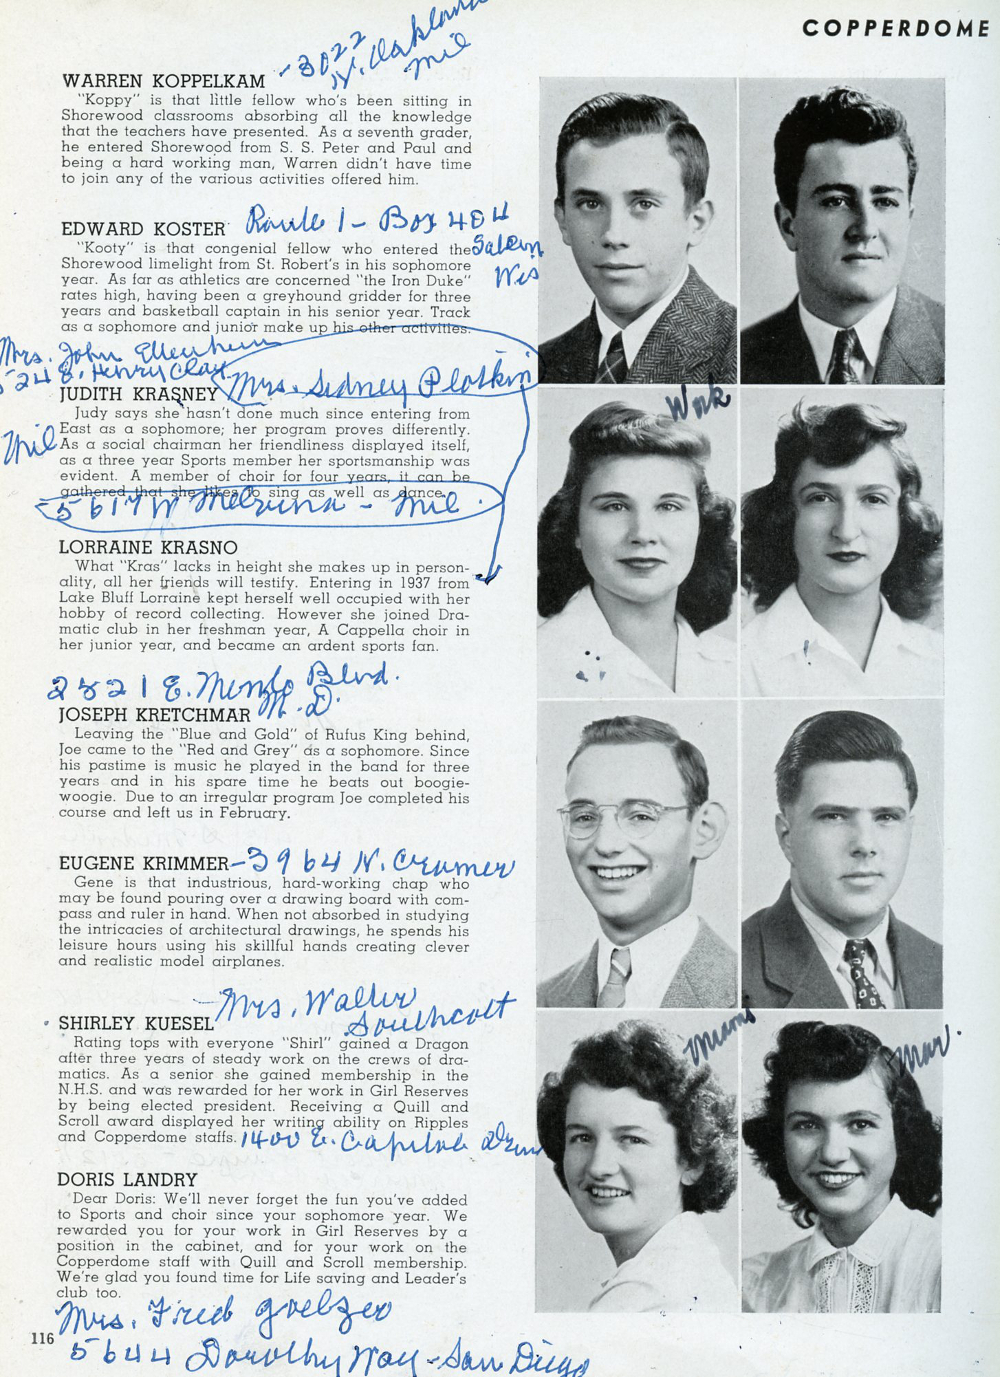 COPPERDOME
-3022
N. Oakland
Mil
WARREN KOPPELKAM
"Koppy" is that little fellow who's been sitting in
Shorewood classrooms absorbing all the knowledge
that the teachers have presented. As a seventh grader,
he entered Shorewood from S. S. Peter and Paul and
being a hard working man, Warren didn't have time
to join any of the various activities offered him.
EDWARD KOSTER Route 1 - Box 404
Salem
Wis
"Kooty" is that congenial fellow who entered the
Shorewood limelight from St. Robert's in his sophomore
year. As far as athletics are concerned "the Iron Duke"
rates high, having been a greyhound gridder for three
years and basketball captain in his senior year. Track
as a sophomore and junior make up his other activities.
Mrs. John
524 E. Henry Clay
Mil
JUDITH KRASNEY Mrs. Sidney Plotkin
Judy says she hasn't done much since entering from
East as a sophomore; her program proves differently.
As a social chairman her friendliness displayed itself,
as a three year Sports member her sportsmanship was
evident. A member of choir for four years, it can be
gathered that she likes to sing as well as dance.
5617 W Melvina - Mil
Work
LORRAINE KRASNO
What "Kras" lacks in height she makes up in person-
ality, all her friends will testify. Entering in 1937 from
Lake Bluff Lorraine kept herself well occupied with her
hobby of record collecting. However she joined Dra-
matic club in her freshman year, A Cappella choir in
her junior year, and became an ardent sports fan.
2821 E. Menlo Blvd.
JOSEPH KRETCHMAR M.D.
Leaving the "Blue and Gold" of Rufus King behind,
Joe came to the "Red and Grey" as a sophomore. Since
his pastime is music he played in the band for three
years and in his spare time he beats out boogie-
woogie. Due to an irregular program Joe completed his
course and left us in February.
EUGENE KRIMMER-3964 N. Cramer
Gene is that industrious, hard-working chap who
may be found pouring over a drawing board with com-
pass and ruler in hand. When not absorbed in studying
the intricacies of architectural drawings, he spends his
leisure hours using his skillful hands creating clever
and realistic model airplanes.
- Mrs. Walter
Southcott
SHIRLEY KUESEL
Rating tops with everyone "Shirl" gained a Dragon
after three years of steady work on the crews of dra-
matics. As a senior she gained membership in the
N.H.S. and was rewarded for her work in Girl Reserves
by being elected president. Receiving a Quill and
Scroll award displayed her writing ability on Ripples
and Copperdome staffs. 1400 E. Capitol Drive
Miami
Mar.
DORIS LANDRY
Dear Doris: We'll never forget the fun you've added
to Sports and choir since your sophomore year. We
rewarded you for your work in Girl Reserves by a
position in the cabinet, and for your work on the
Copperdome staff with Quill and Scroll membership.
We're glad you found time for Life saving and Leader's
club too.
Mrs. Fred Goelzer
116
5644 Dorothy Way - San Diego